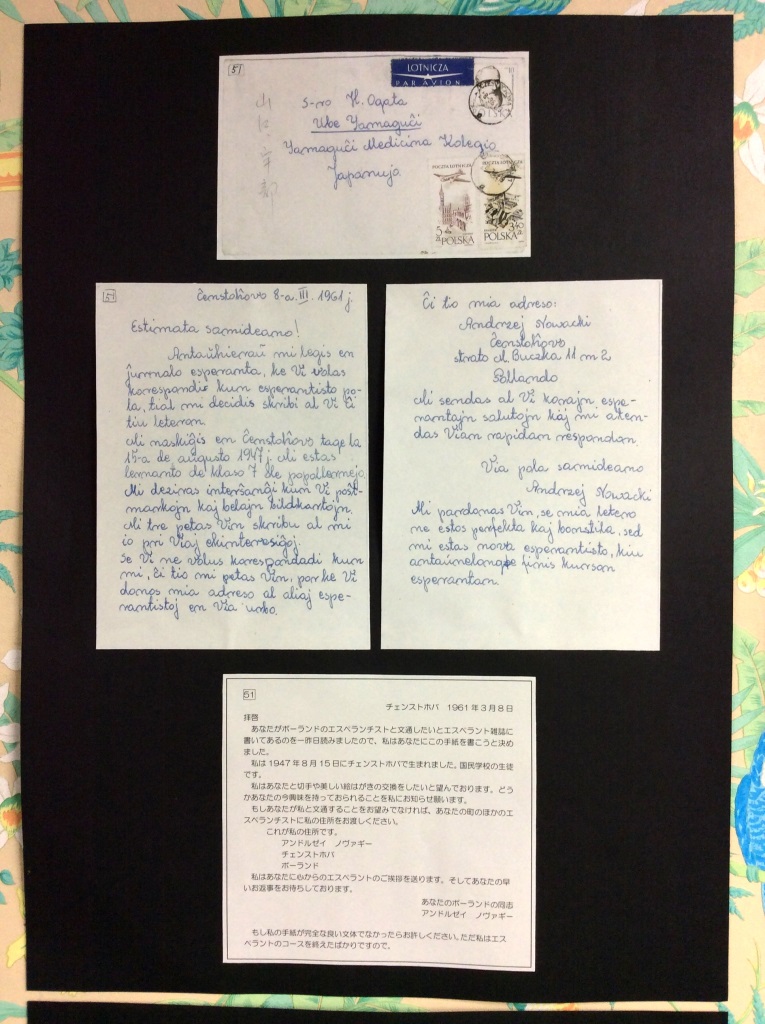 51
LOTNICZA
PAR AVION
S-ro H. Ogata
Ube Yamaguĉi
Yamaguĉi Medicina Kolegio
Japanujo
山口・宇部
POCZTA LOTNICZA
5 zł
POLSKA
POCZTA LOTNICZA
3,40 zł
POLSKA
51
Ĉenstoĥovo 8-a. III. 1961 j.
Estimata samideano!
Antaŭhieraŭ mi legis en
ĵurnalo esperanta, ke Vi volas
korespondi kun esperantisto po-
la, tial mi decidis skribi al Vi ĉi
tiu leteron.
Mi naskiĝis en Ĉenstoĥovo tage la
15-a de augusto 1947 j. Mi estas
lernanto de klaso 7 de popollernejo.
Mi deziras interŝanĝi kun Vi poŝt-
markojn kaj belajn bildkartojn.
Mi tre petas Vin skribu al mi
io pri Viaj ekinteresiĝoj.
Se Vi ne volus korespondadi kun
mi, ĉi tio mi petas Vin, por ke Vi
donos mia adreso al aliaj espe-
rantistoj en Via urbo.
Ĉi tio mia adreso:
Andrzej Nowacki
Ĉenstoĥovo
strato ul. Buczka 11 m 2
Pollando
Mi sendas al Vi korajn espe-
rantajn salutojn kaj mi aten-
das Vian rapidan respondon.
Via pola samideano
Andrzej Nowacki
Mi pardonas Vin, se mia letero
ne estos perfekta kaj bonstila, sed
mi estas nova esperantisto, kiu
antaŭnelonge finis kurson
esperantan.
51
チェンストホバ 1961年3月8日
拝啓
あなたがポーランドのエスペランチストと文通したいとエスペラント雑誌に
書いてあるのを一昨日読みましたので、私はあなたにこの手紙を書こうと決め
ました。
私は1947年8月15日にチェンストホバで生まれました。国民学校の生徒
です。
私はあなたと切手や美しい絵はがきの交換をしたいと望んでおります。どう
かあなたの今興味を持っておられることを私にお知らせ願います。
もしあなたが私と文通することをお望みでなければ、あなたの町のほかのエ
スペランチストに私の住所をお渡しください。
これが私の住所です。
アンドルゼイ ノヴァギー
チェンストホバ
ポーランド
私はあなたに心からのエスペラントのご挨拶を送ります。そしてあなたの早
いお返事をお待ちしております。
あなたのポーランドの同志
アンドルゼイ ノヴァギー
もし私の手紙が完全な良い文体でなかったらお許しください。ただ私はエス
ペラントのコースを終えたばかりですので。